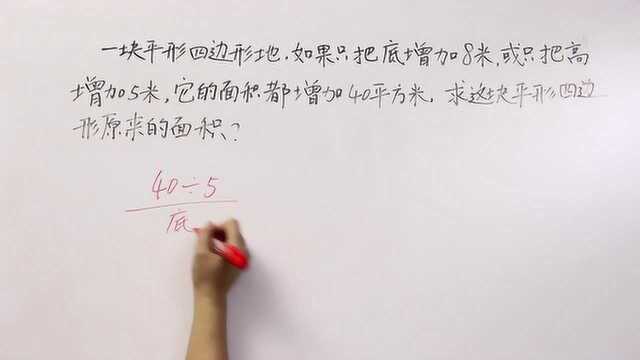 一块平形四边形地.如果只把底增加8米,或只把高
增加5米,它的面积都增加40平方米,求这块平形四边
形原来的面积?
40÷5
底